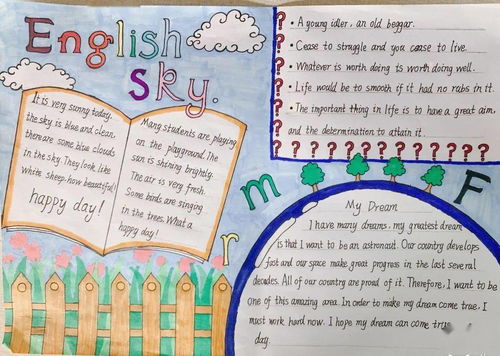 English
Sky.
It is very sunny today.
the sky is blue and clean.
there are some blue clouds
in the sky. They look like
white sheep. How beautiful!
happy day!
Many students are playing
on the playground. The
sun is shining brightly.
The air is very fresh.
Some birds are singing
in the trees. What a
happy day!
? • A young idler, an old beggar.
? • Cease to struggle and you cease to live.
? • Whatever is worth doing is worth doing well.
? • Life would be to smooth if it had no rubs in it.
? • The important thing in life is to have a great aim.
? and the determination to attain it.
? ? ? ? ? ? ? ? ? ? ? ? ?
m
F
r
My Dream
I have many dreams. my greatest dream
is that I want to be an astronaut. Our country develops
fast and our space make great progress in the last several
decades. All of our country are proud of it. Therefore, I want to be
one of this amazing area. In order to make my dream come true, I
must work hard now. I hope my dream can come true
day.